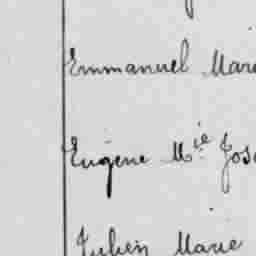 Emmanuel Mari
Eugène Mie Jose
Julien Marie